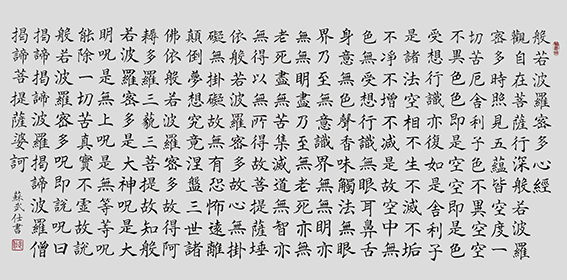 般若波羅密多心經
觀自在菩薩行深般若波羅
密多時照見五蘊皆空度一
切苦厄舍利子色不異空空
不異色色即是空空即是色
受想行識亦復如是舍利子
是諸法空相不生不滅不垢
不淨不增不減是故空中無
色無受想行識無眼耳鼻舌
身意無色聲香味觸法無眼
界乃至無意識界無無明亦
無無明盡乃至無老死亦無
老死盡無苦集滅道無智亦
無得以無所得故菩提薩埵
依般若波羅密多故心無掛
礙無掛礙故無有恐怖遠離
顛倒夢想究竟涅盤三世諸
佛依般若波羅密多故得阿
耨多羅三藐三菩提故知般
若波羅密多是大神呪是大
明呪是無上呪是無等等呪
能除一切苦真實不虛故說
般若波羅密多呪即說呪曰
揭諦揭諦波羅揭諦波羅僧
揭諦菩提薩婆訶
蘇武仕書